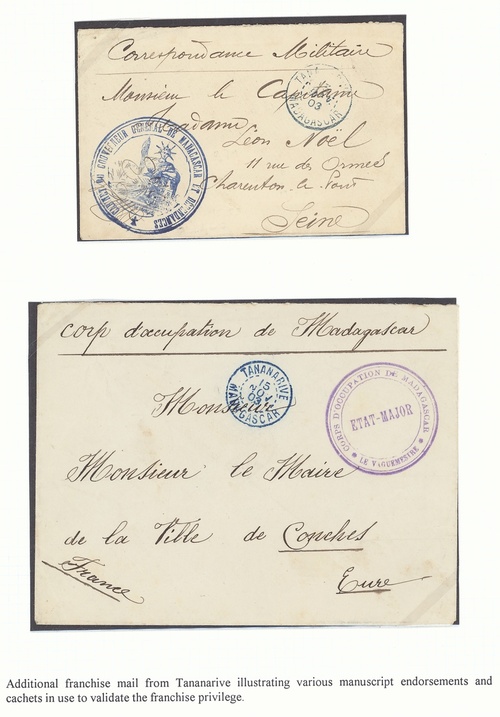 Correspondance Militaire
Monsieur le Capitaine
Madame
Léon Noël
11 rue des Ormes
Charenton le Pont
Seine
MADAGASCAR
03
GOUVERNEUR GÉNÉRAL DE MADAGASCAR ET DÉPENDANCES
Corp d'occupation de Madagascar
TANANARIVE
15
03
MADAGASCAR
CORPS D'OCCUPATION DE MADAGASCAR
ETAT-MAJOR
LE VAGUEMESTRE
Monsieur
Monsieur le Maire
de la Ville de Conches
France
Eure
Additional franchise mail from Tananarive illustrating various manuscript endorsements and
cachets in use to validate the franchise privilege.